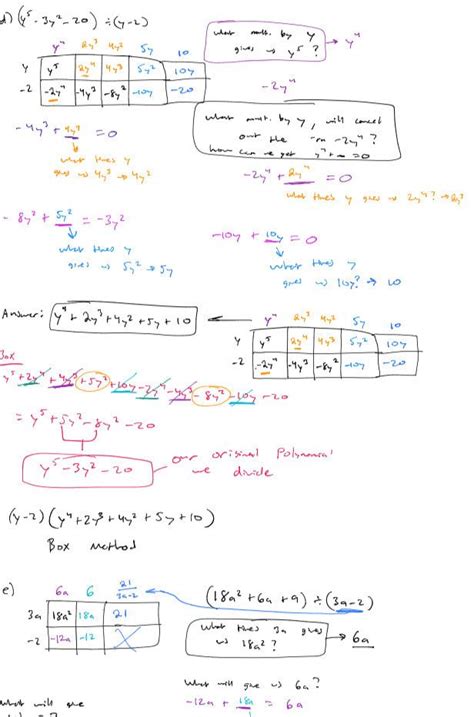 d) (y⁵ - 3y² - 20) ÷ (y-2)
what mult. by y gives us y⁵ ? → y⁴
y⁴ 2y³ 4y² 5y 10
y y⁵ 2y⁴ 4y³ 5y² 10y
-2 -2y⁴ -4y³ -8y² -10y -20
-2y⁴
what mult. by y, will cancel
out the -2y⁴?
how can we get = 0
-4y³ + 4y³ = 0
what times y
gives us 4y³ → 4y²
-2y⁴ + 2y⁴ = 0
what times y gives us 2y⁴? → 2y³
-8y² + 5y² = -3y²
what times y
gives us 5y² → 5y
-10y + 10y = 0
what times y
gives us 10y? → 10
Answer: y⁴ + 2y³ + 4y² + 5y + 10
y⁴ 2y³ 4y² 5y 10
y y⁵ 2y⁴ 4y³ 5y² 10y
-2 -2y⁴ -4y³ -8y² -10y -20
Box
y⁵ + 2y⁴ + 4y³ + 5y² + 10y - 2y⁴ - 4y³ - 8y² - 10y - 20
= y⁵ + 5y² - 8y² - 20
y⁵ - 3y² - 20 our original Polynomial
we divide
(y-2) (y⁴ + 2y³ + 4y² + 5y + 10)
Box Method
e) (18a² + 6a + 9) ÷ (3a-2)
6a 6 21/3a-2
3a 18a² 18a 21
-2 -12a -12
What times 3a gives
us 18a²? → 6a
what will give us 6a?
-12a + 18a = 6a
what will give